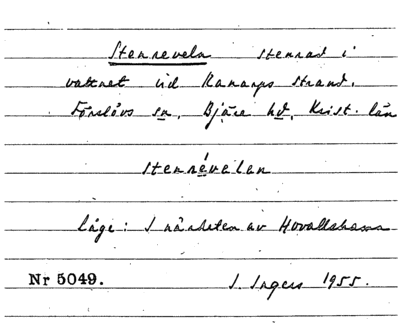 Stenreveln stenrad i
vattnet vid Ramarps strand,
Förslövs sn, Bjäre hd, Krist. län
stenrévelen
läge: I närheten av Hovallshamn
Nr 5049.
I. Ingers 1955.